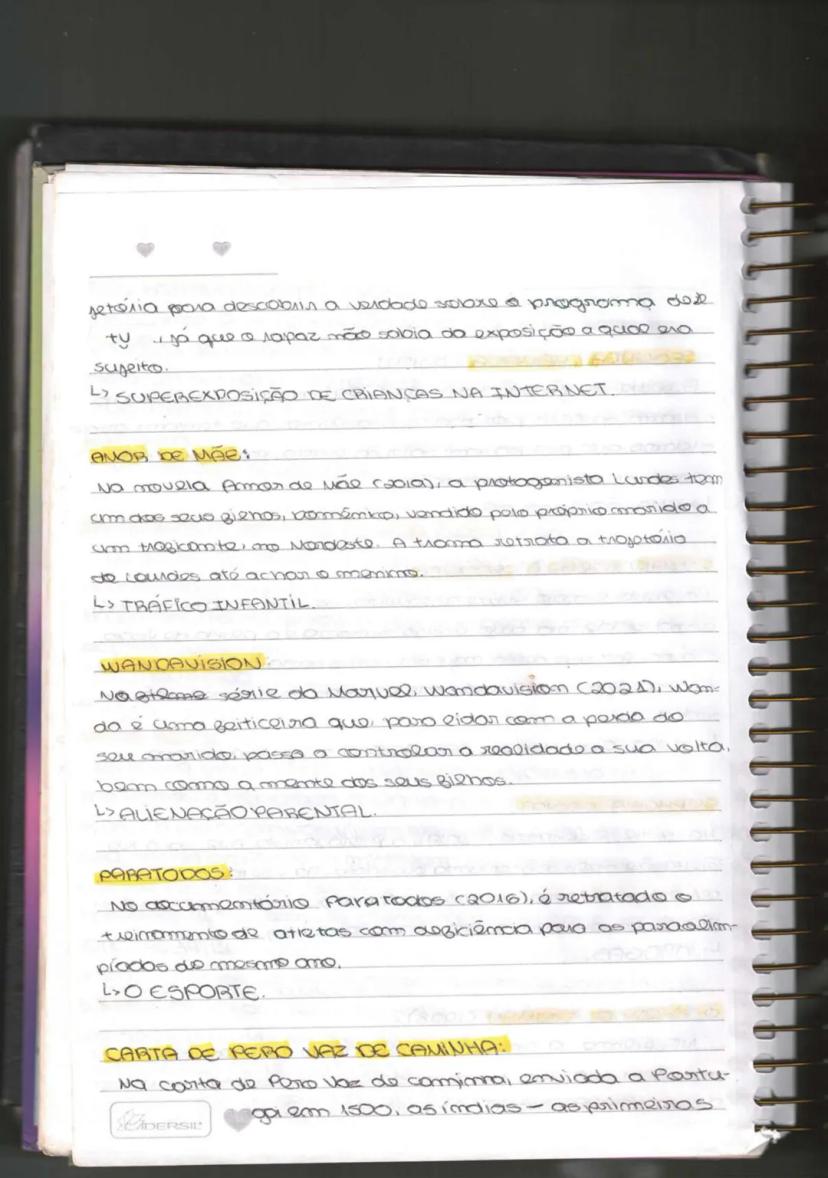 jetória para descobrir a verdade sobre o programa de
ty , já que o rapaz não sabia da exposição a qual era
sujeito.
↳ SUPEREXPOSIÇÃO DE CRIANÇAS NA INTERNET.
AMOR DE MÃE:
Na novela Amor de Mãe (2019), a protagonista Lurdes tem
um dos seus filhos, Domênico, vendido pelo próprio marido a
um traficante, no Nordeste. A trama retrata a trajetória
de Lourdes até achar o menino.
↳ TRÁFICO INFANTIL.
WANDAVISION
Na série da Marvel, Wandavision (2021), Wan-
da é uma feiticeira que, para lidar com a perda do
seu marido, passa a controlar a realidade a sua volta,
bem como a mente dos seus filhos.
↳ ALIENAÇÃO PARENTAL.
PARATODOS:
No documentário Paratodos (2016), é retratado o
treinamento de atletas com deficiência para as paraolím-
píadas do mesmo ano.
↳ O ESPORTE.
CARTA DE PERO VAZ DE CAMINHA:
Na carta de Pero Vaz de caminha, enviada a Portu-
gal em 1500, os índios – os primeiros